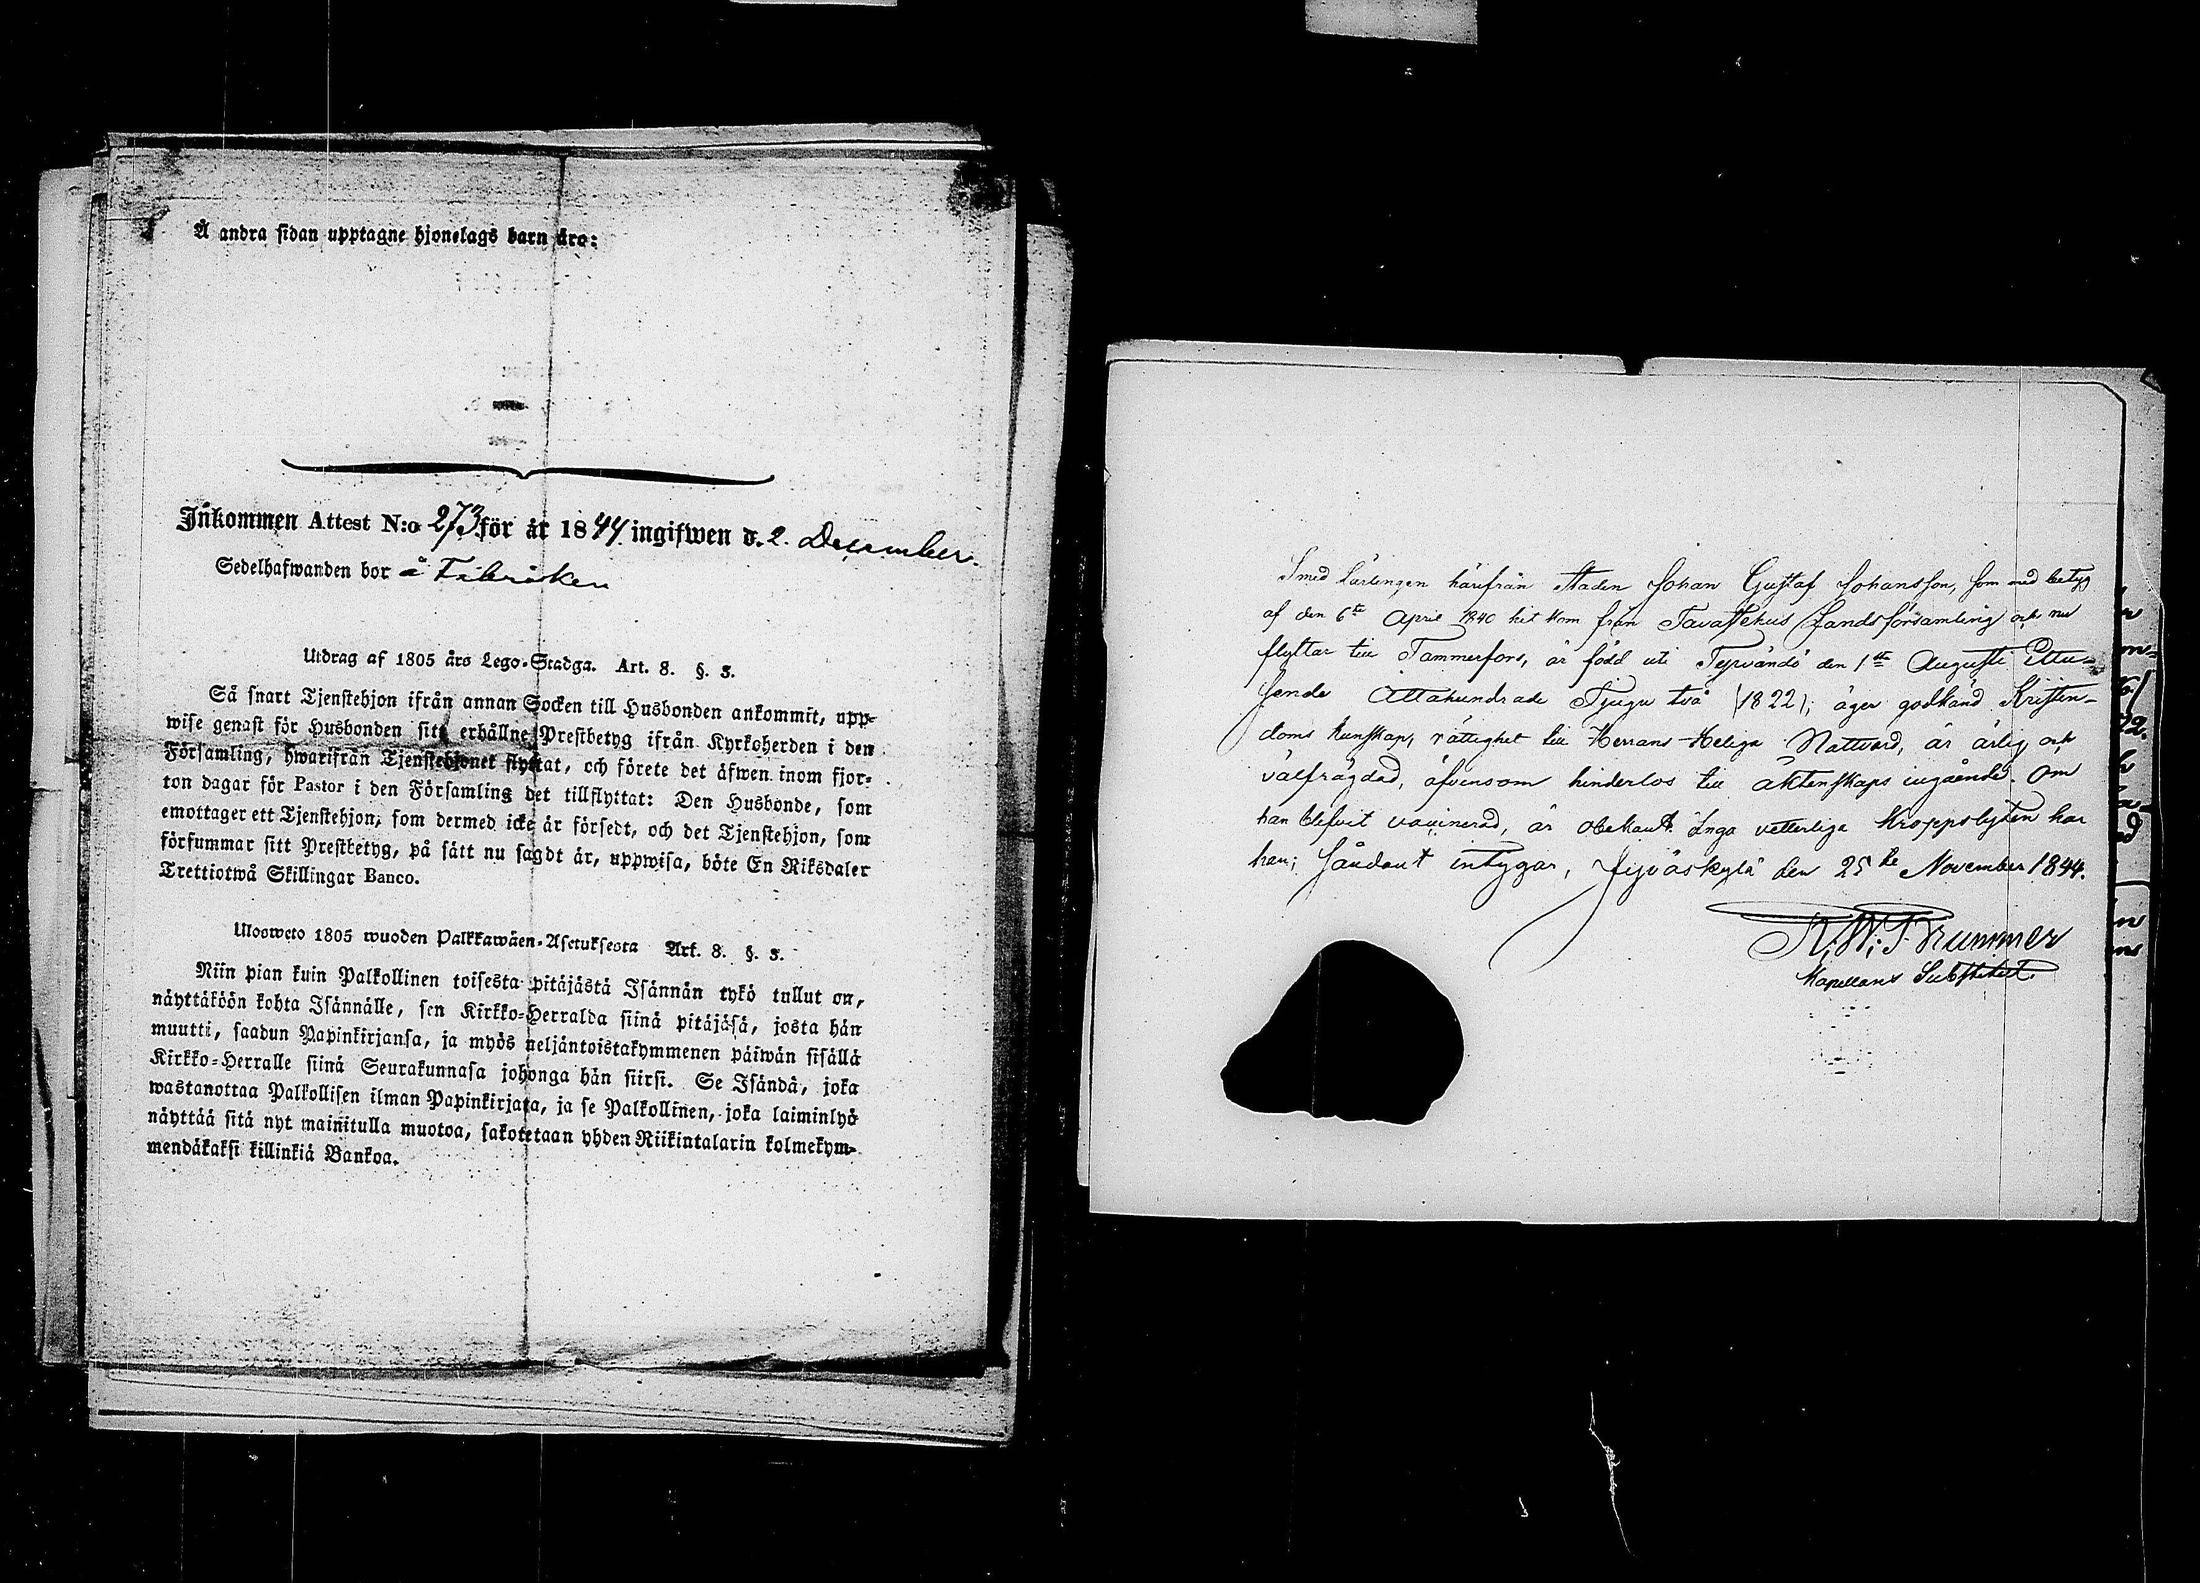 Å andra sidan upptagne hjonelags barn äro:
Inkommen Attest N:o 273 för år 1844 ingifwen d. 2. December.
Sedelhafwanden bor å Fabriken
Utdrag af 1805 års Lego-Stadga. Art. 8. §. 3.
Så snart Tjenstehjon ifrån annan Socken till Husbonden ankommit, upp-
wise genast för Husbonden sitt erhållne Prestbetyg ifrån Kyrkoherden i den
Församling, hwarifrån Tjenstehjonet flyttat, och förete det äfwen inom fjor-
ton dagar för Pastor i den Församling det tillflyttat: Den Husbonde, som
emottager ett Tjenstehjon, som dermed icke är försedt, och det Tjenstehjon, som
försummar sitt Prestbetyg, på sätt nu sagdt är, uppwisa, böte En Riksdaler
Trettiotwå Skillingar Banco.
Ulosweto 1805 wuoden Palkkawäen-Asetuksesta Art. 8. §. 3.
Niin pian kuin Palkollinen toisesta pitäjästä Isännän tykö tullut on,
näyttäköön kohta Isännälle, sen Kirkko-Herralda siinä pitäjäsä, josta hän
muutti, saadun Papinkirjansa, ja myös neljäntoistakymmenen päiwän sisällä
Kirkko-Herralle siinä Seurakunnasa johonga hän siirsi. Se Isändä, joka
wastanottaa Palkollisen ilman Papinkirjata, ja se Palkollinen, joka laiminlyö
näyttää sitä nyt mainitulla muotoa, sakotetaan yhden Riikintalarin kolmekym-
mendäkaksi killinkiä Bankoa.
Smed Lärlingen härifrån Staden Johan Gustaf Johansson, som med betyg
af den 6te April 1840 hit kom från Tavastehus Landsförsamling och nu
flyttar till Tammerfors, är född uti Tyrvändö den 1ste Augusti Ettu-
sende Åttahundrade Tjugu två (1822); äger godkänd Kristen-
doms kunskap, rättighet till Herrans Heliga Nattvard, är ärlig och
välfrägdad, äfvensom hinderlös till äktenskaps ingående. Om
han blifvit vaccinerad, är obekant. Inga vetterliga kroppslyten har
han; sådant intygar, Jyväskylä den 25te November 1844.
K. W. Trummer
Kapellans Substitut.